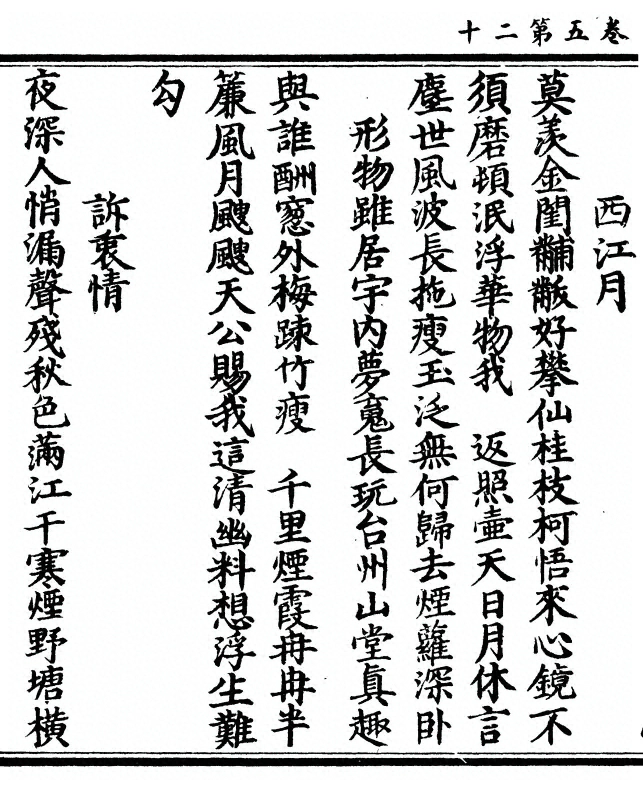 卷五第二十
西江月
莫羨金閨黼黻好攀仙桂枝柯悟來心鏡不
須磨頓泯浮華物我　返照壷天日月休言
塵世風波長拖瘦玉泛無何歸去煙蘿深卧
形物雖居宇内夢䰟長玩台州山堂眞趣
與誰酬窻外梅踈竹瘦　千里煙霞冉冉半
簾風月颼颼天公賜我這清幽料想浮生難
勾
訴衷情
夜深人悄漏聲殘秋色滿江干寒煙野塘橫